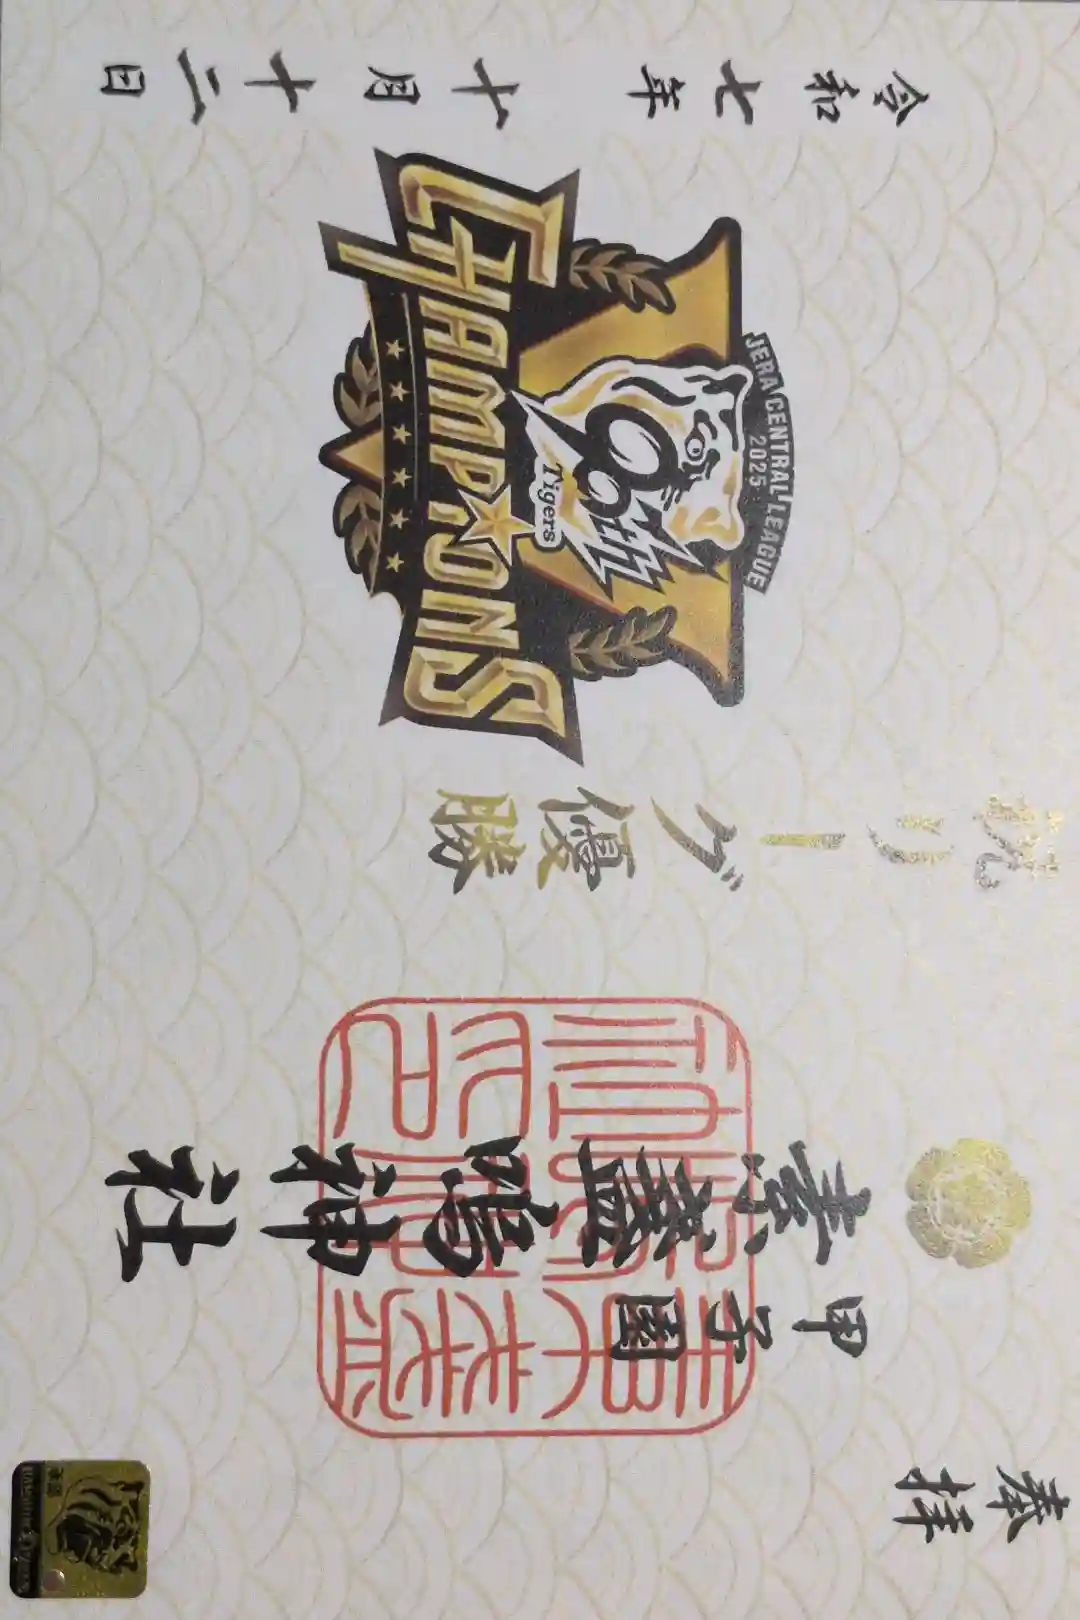 奉拝
甲子園
素盞嗚神社
祝リーグ優勝
JERA CENTRAL LEAGUE
2025
90th
Tigers
CHAMPIONS
令和七年十月十二日